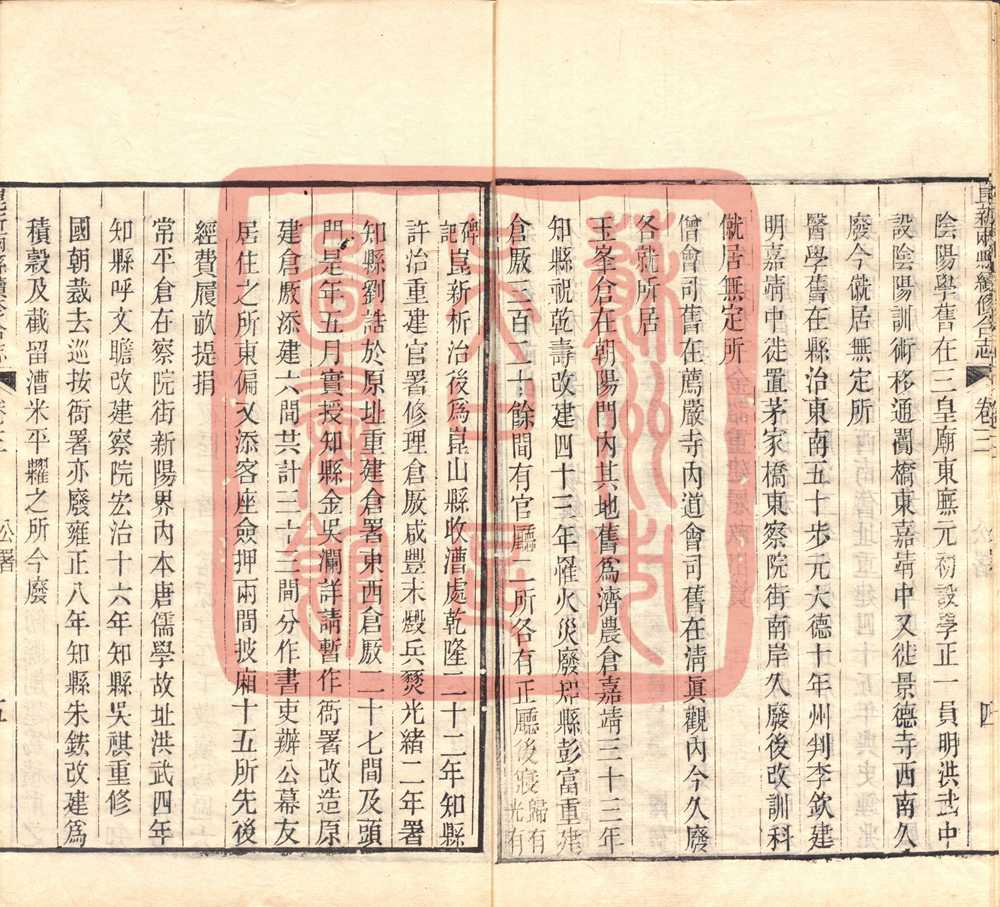 陰陽學舊在三皇廟東廡元初設學正一員明洪武中
設陰陽訓術移通闤橋東嘉靖中又徙景德寺西南久
廢今僦居無定所
醫學舊在縣治東南五十步元大德十年州判李欽建
明嘉靖中徙置茅家橋東察院街南岸久廢後改訓科
僦居無定所
僧會司舊在薦嚴寺內道會司舊在清眞觀內今久廢
各就所居
玉峯倉在朝陽門內其地舊為濟農倉嘉靖三十三年
知縣祝乾壽改建四十三年罹火災廢知縣彭富重建
倉厫三百二十餘間有官廳二所各有正廳後寢歸有光有
碑記崑新析治後爲崑山縣收漕處乾隆二十二年知縣
許治重建官署修理倉厫咸豐末燬兵燹光緒二年署
知縣劉誥於原址重建倉署東西倉厫二十七間及頭
門是年五月實授知縣金吳瀾詳請暫作衙署改造原
建倉厫添建六間共計三十三間分作書吏辦公幕友
居住之所東偏又添客座僉押兩間披厢十五所先後
經費履畝提捐
常平倉在察院街新陽界內本唐儒學故址洪武四年
知縣呼文瞻改建察院宏治十六年知縣吳祺重修
國朝裁去巡按衙署亦廢雍正八年知縣朱鋐改建爲
積穀及截留漕米平糶之所今廢
崑新兩縣續修合志
卷三
四
公署
五
蘇州市圖書館